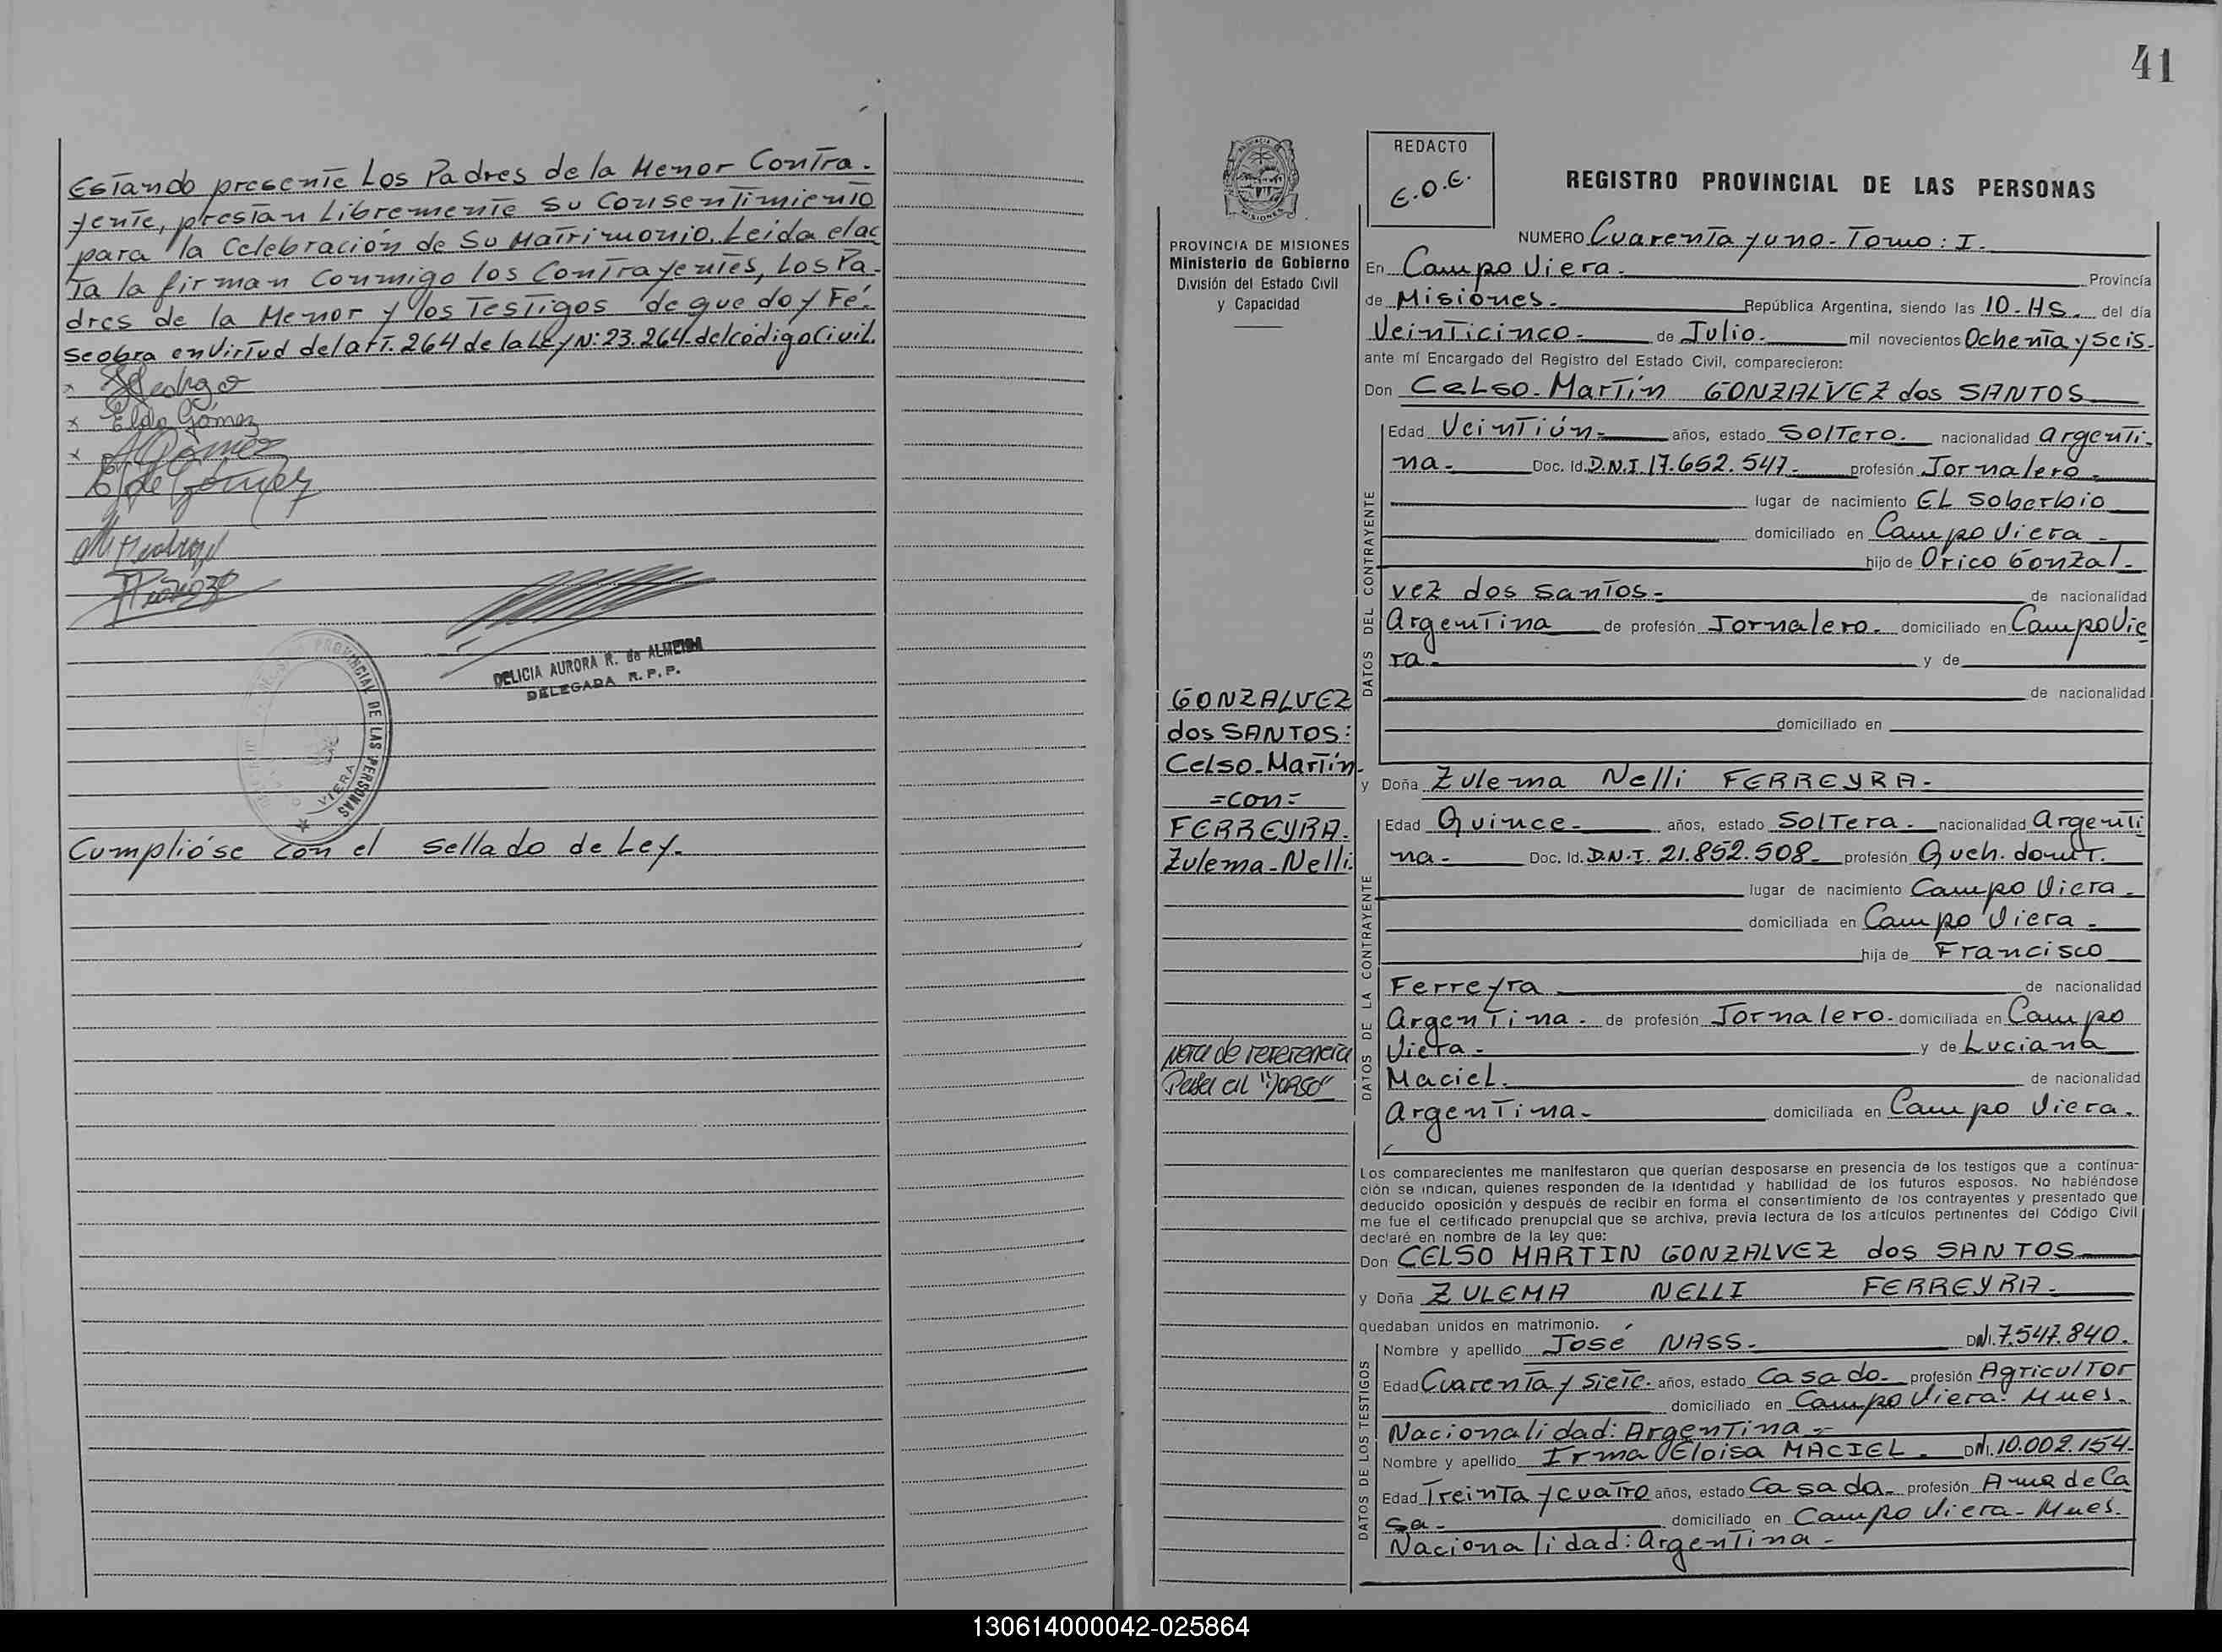 Estando presente Los Padres de la Menor Contra-
yente, prestan Libremente su Consentimiento
para la Celebración de Su Matrimonio. Leida el ac
ta la firman Conmigo los Contrayentes, Los Pa-
dres de la Menor y los Testigos de que doy Fé.
Se obra en Virtud del art. 264 de la Ley N: 23.264 del código Civil.
x Pedrozo
x Elda Gómez
x Gomez
de Gomez
DELICIA AURORA R. de ALMEIDA
DELEGADA R.P.P.
PROVINCIAL DE LAS PERSONAS
VIERA
Cumplióse con el sellado de Ley.
41
PROVINCIA DE MISIONES
Ministerio de Gobierno
División del Estado Civil
y Capacidad
GONZALVEZ
dos SANTOS:
Celso-Martín-
=con=
FERREYRA-
Zulema-Nelli.
Nota de referencia
Pasa al "Dorso"
REDACTO
E.O.E.
REGISTRO PROVINCIAL DE LAS PERSONAS
NUMERO Cuarenta y uno- Tomo: I.
En Campo Viera- Provincia
de Misiones- República Argentina, siendo las 10-HS. del día
Veinticinco- de Julio- mil novecientos Ochenta y Seis-
ante mí Encargado del Registro del Estado Civil, comparecieron:
Don Celso-Martín GONZALVEZ dos SANTOS
DATOS DEL CONTRAYENTE
Edad Veintiún- años, estado Soltero- nacionalidad argenti-
na- Doc. Id. D.N.I. 17.652.547- profesión Jornalero-
lugar de nacimiento EL Soberbio
domiciliado en Campo Viera-
hijo de Orico Gonzal-
vez dos Santos- de nacionalidad
Argentina de profesión Jornalero- domiciliado en Campo Vie
ra- y de
de nacionalidad
domiciliado en
y Doña Zulema Nelli FERREYRA-
DATOS DE LA CONTRAYENTE
Edad Quince- años, estado Soltera- nacionalidad argenti
na- Doc. Id. D.N.I. 21.852.508- profesión Queh. domt.
lugar de nacimiento Campo Viera-
domiciliada en Campo Viera-
hija de Francisco
Ferreyra de nacionalidad
Argentina- de profesión Jornalero- domiciliada en Campo
Viera- y de Luciana
Maciel- de nacionalidad
Argentina- domiciliada en Campo Viera.
Los comparecientes me manifestaron que querían desposarse en presencia de los testigos que a continua-
ción se indican, quienes responden de la identidad y habilidad de los futuros esposos. No habiéndose
deducido oposición y después de recibir en forma el consentimiento de los contrayentes y presentado que
me fue el certificado prenupcial que se archiva, previa lectura de los artículos pertinentes del Código Civil
declaré en nombre de la ley que:
Don CELSO MARTIN GONZALVEZ dos SANTOS
y Doña ZULEMA NELLI FERREYRA-
quedaban unidos en matrimonio.
DATOS DE LOS TESTIGOS
Nombre y apellido José NASS- DNI. 7.547.840.
Edad Cuarenta y siete- años, estado Casado- profesión Agricultor
domiciliado en Campo Viera- Mnes-
Nacionalidad: Argentina-
Nombre y apellido Irma Eloisa MACIEL- DNI. 10.002.154-
Edad Treinta y cuatro años, estado Casada- profesión Ama de Ca
sa- domiciliado en Campo Viera- Mnes.
Nacionalidad: argentina-
130614000042-025864